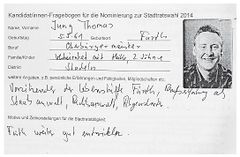 Kandidat/innen-Fragebogen für die Nominierung zur Stadtratswahl 2014
Name, Vorname
Jung Thomas
Geburtstag
5.5.61
Fürth
Beruf
Oberbürgermeister
Familie/Kinder
Verheiratet mit 2 Söhne
Stadtteil
Stadeln
weitere Angaben, z.B. persönliche Erfahrungen und Fähigkeiten, Mitgliedschaften etc.
Vorsitzender der Lebenshilfe Fürth, Berufserfahrung als
Staatsanwalt, Rechtsanwalt,
Motive und Zielvorstellungen für die Stadtratstätigkeit
Fürth weiter gut entwickeln.